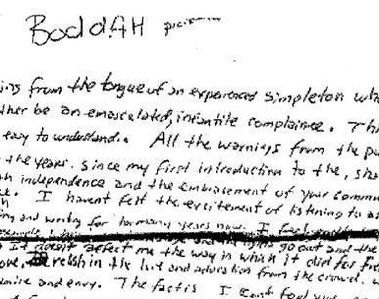 BoddAH
ing from the tongue of an experienced simpleton who
ther be an emasculated, infantile complainee. This
easy to understand. All the warnings from the pu
the years. since my first introduction to the, sha
th independence and the embracement of your commu
I havent felt the excitement of listening to as
ing and writing for too many years now. I feel
go out and the
it doesnt affect me the way in which it did for Fre
ove, relish in the love and adoration from the crowd. w
mire and envy. The fact is I cant fool you